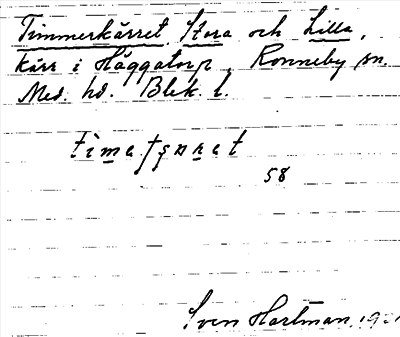 Timmerkärret, Stora och Lilla,
kärr i Häggatorp, Ronneby sn.
Med. hd. Blek. l.
58
Sven Hartman